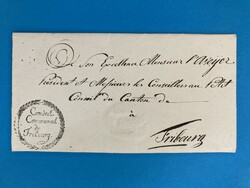 A Son Excellence Monsieur l'Avoyer
Président et Messieurs les Conseillers au Petit
Conseil du Canton de
à
Fribourg
Conseil
Communal
de
Fribourg